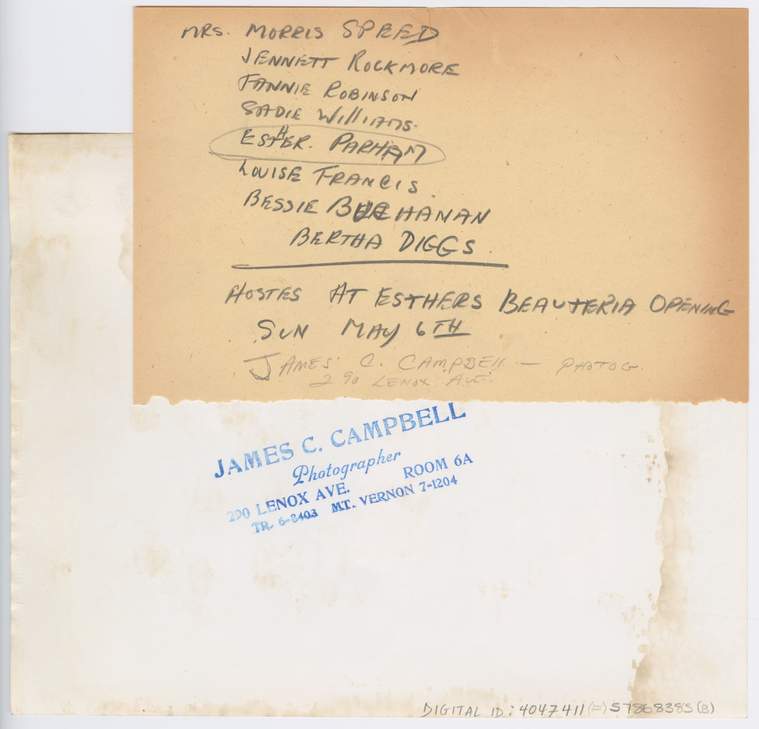 MRS. MORRIS SPEED
JENNETT ROCKMORE
FANNIE ROBINSON
SADIE WILLIAMS.
ESTHER. PARHAM
LOUISE FRANCIS.
BESSIE BUCHANAN
BERTHA DIGGS.
HOSTES AT ESTHERS BEAUTERIA OPENING
SUN MAY 6TH
JAMES C. CAMPBELL — PHOTOG.
290 LENOX AVE.
JAMES C. CAMPBELL
Photographer
290 LENOX AVE. ROOM 6A
TR. 6-8403 MT. VERNON 7-1204
DIGITAL ID: 4047411 (=) 57868385 (B)